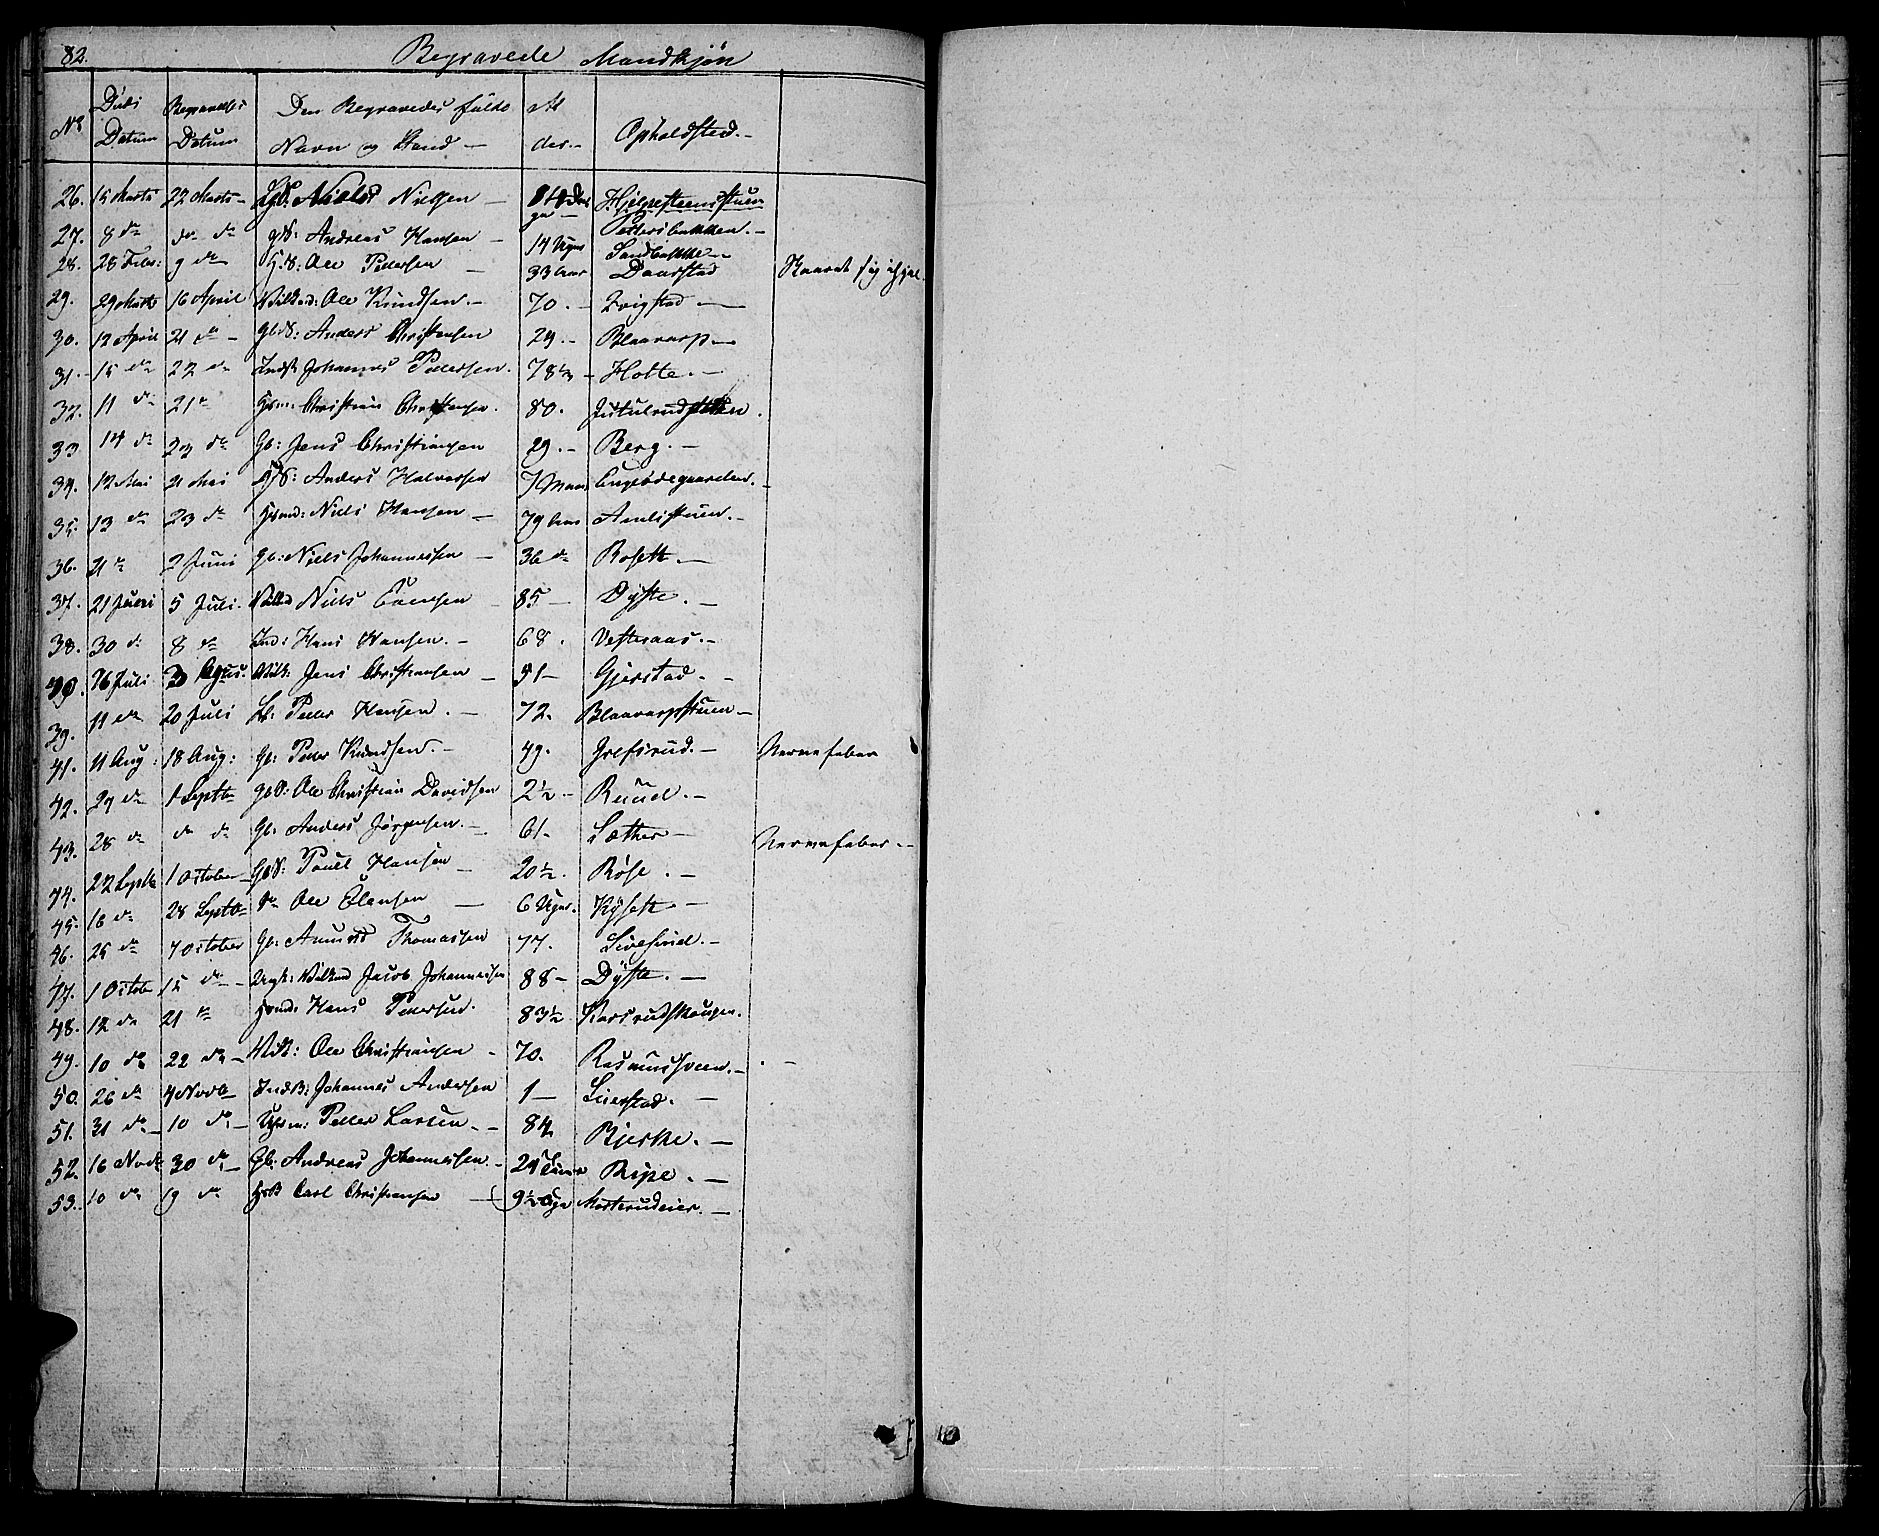 82. Begravede Mandkjøn
No Døds Datum Begravelses Datum Den Begravedes fulde Navn og Stand — Al der.- Opholdsted.-
26. 15 Marts 22 Marts - Niels Nielsen — Hjelpesteensstuen
27. 8 do do do gS: Andreas Hansen — 14 Uger Pettersbakken. -
28. 28 Febr: 9 do H:S: Ole Pedersen — 33 Aar Sandbakke Daarstad Skaaret sig ihjel.
29. 29 Marts 16 April Ole Knudsen. - 70. - Evigstad —
30. 12 April 21 do - GbS: Anders Christensen 29. - Blaavarp —
31. 15 do 22 do Inds Johannes Pedersen. 78 1/2 - Hotte. -
32. 11 do 21 do Christian Christensen. 80. Jutulrud
33 14 do 23 do Gb: Jens Christiansen 29. - Berg. -
34. 12 Mai 21 Mai GS: Anders Halvorsen 7 Maan Engeødegaarden. -
35. 13 do 23 do Husmd: Niels Hansen — 79 Aar Amlistuen. -
36. 21 do 2 Juni Gb: Niels Johannessen — 36 do Roseth. —
37. 21 Juni 5 Juli. Niels Evensen — 85 — Dyste. —
38. 30 do 8 do Ind: Hans Hansen. - 68. Vesteraas. -
40. 26 Juli 3 Agus. Vilk: Jens Christiansen — 51 — Gjerstad. -
39. 11 do 20 Juli Peder Hansen. — 72. Blaavarpstuen —
41. 11 Aug: 18 Aug: Gb: Peder Knudsen. - 49. Grefsrud. - Nervefeber
42. 27 do 1 Septbr GbS: Ole Christian Davidsen 2 1/2 - Ruud. -
43. 28 do do do Gb: Anders Jørgensen. - 61. Sæther - Nervefeber. -
44. 22 Septbr 1 October GbS: Pouel Hansen — 20 1/2. Røse. -
45. 16 do 28 Septbr do Ole Olausen — 6 Uger. Kyseth. -
46. 25 do 7 October Gb: Amund Thomassen 77. Sivesind. -
47. 1 Octobr 15 do - Jacob Johannessen 88 - Dyste. —
48. 12 do 21 do Husmd: Hans Pedersen. 83 1/2 Karsrudskougen.
49. 10 do 22 do - Ole Christiansen - 70. Rasmussveen. -
50. 26 do 4 Novb IndB: Johannes Andersen 1 — Lierstad. —
51. 31 do - 10 do - Peder Larsen. - 84 Bjerke. —
52. 16 Novb 30 do - Gb: Andreas Johannessen. - Ripe. —
53. 10 do 19 do Carl Christiansen — 9 1/2 Uge Mosterudeier. —